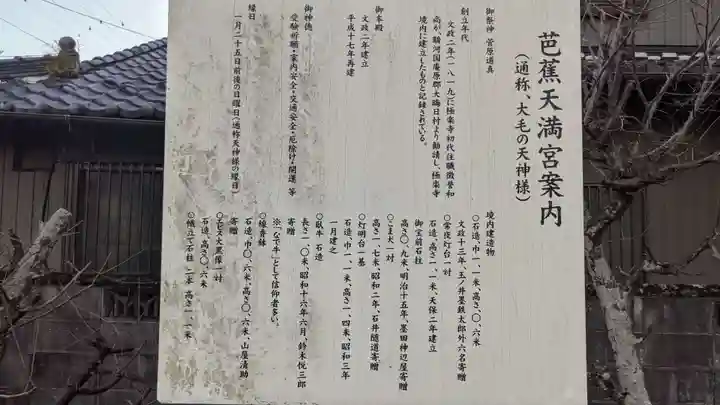 芭蕉天満宮案内
(通称、大毛の天神様)
御祭神 菅原道真
創立年代
文政二年(一八一九)に極楽寺初代住職徹誉和
尚が、駿河国庵原郡大晦日村より勧請し、極楽寺
境内に建立したものと記録されている。
御本殿
文政二年建立
平成十七年再建
御神徳
受験祈願・家内安全・交通安全・厄除け・開運 等
縁日
一月二十五日前後の日曜日(通称天神様の縁日)
境内建造物
〇石造、巾一、一米、高さ〇、六米
文政十三年、玉ノ井墨鉄太郎外六名寄贈
〇常夜灯台一対
石造、高さ一、一米、天保二年建立
御宝前石柱
高さ〇、九米、明治十五年、墨田神辺屋寄贈
〇こま犬一対
高さ一、七米、昭和二年、石井随道寄贈
〇灯明台一基
石造、巾一、一米、高さ一、四米、昭和三年
一月建之
〇臥牛 石造
長さ一、〇米、昭和十六年六月、鈴木悦三郎
寄贈
※「なで牛」として信仰者多い。
〇線香鉢
石造、巾〇、六米、高さ〇、六米、山屋清助
寄贈
石造、高さ〇、六米
〇幟立て石柱 二本 高さ一、一米